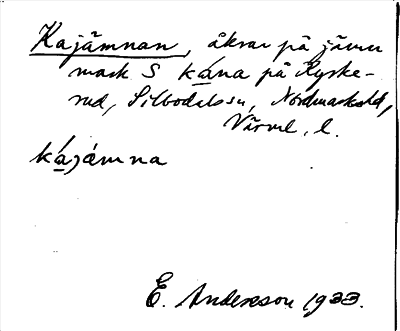 Kajämnan, åkrar på jämn
mark S kána på Ryske-
rud, Silbodals sn, Nordmarks hd,
Värml. l.
kájámna
E. Anderson 1933.